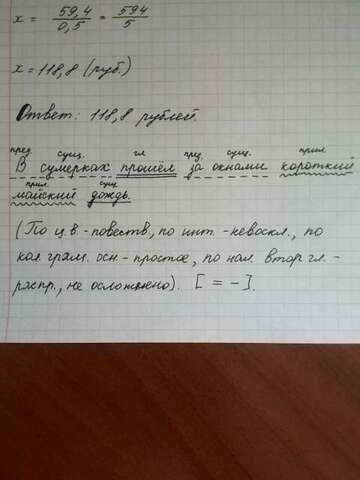 x = 59,4 / 0,5 = 594 / 5
x = 118,8 (руб.)
Ответ: 118,8 рублей.
пред. сущ. гл пред. сущ. прил.
В сумерках прошёл за окнами короткий
прил. сущ
майский дождь.
(По ц.в - повеств, по инт. - невоскл., по
кол грам. осн - простое, по нал. втор гл. -
распр., не осложнено). [ = - ].